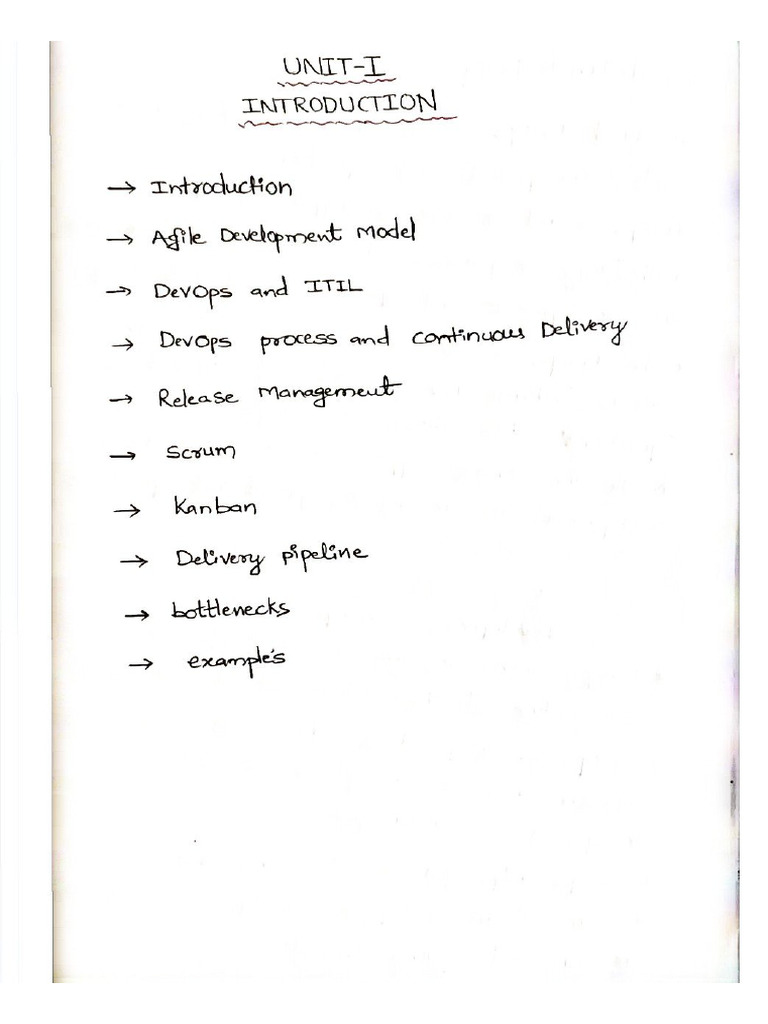 UNIT-I
INTRODUCTION
→ Introduction
→ Agile Development Model
→ DevOps and ITIL
→ DevOps process and continuous Delivery
→ Release Management
→ Scrum
→ Kanban
→ Delivery pipeline
→ bottlenecks
→ example's